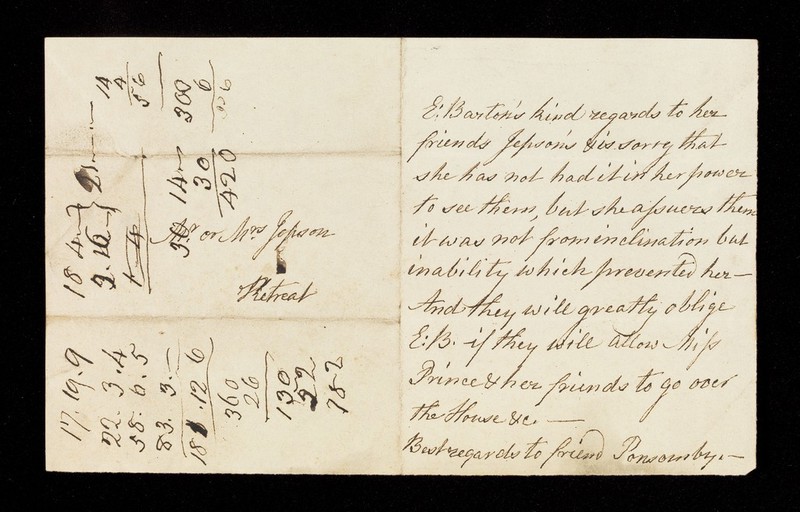 E: Barton's kind regards to her
friends Jepson's & is sorry that
she has not had it in her power
to see them, but she assuers them
it was not from inclination but
inability which prevented her—
And they will greatly oblige
E: B. if they will allow Miss
Prince & her friends to go over
the House &c. —
Best regards to friend Ponsomby.—
Mr or Mrs Jepson
Retreat
14
4
56
300
6
14
30
420
18 4
2. 16
17. 19. 9
22. 3. 4
58. 6. 5
83. 3. —
18 . 12 6
360
26
130
52
782